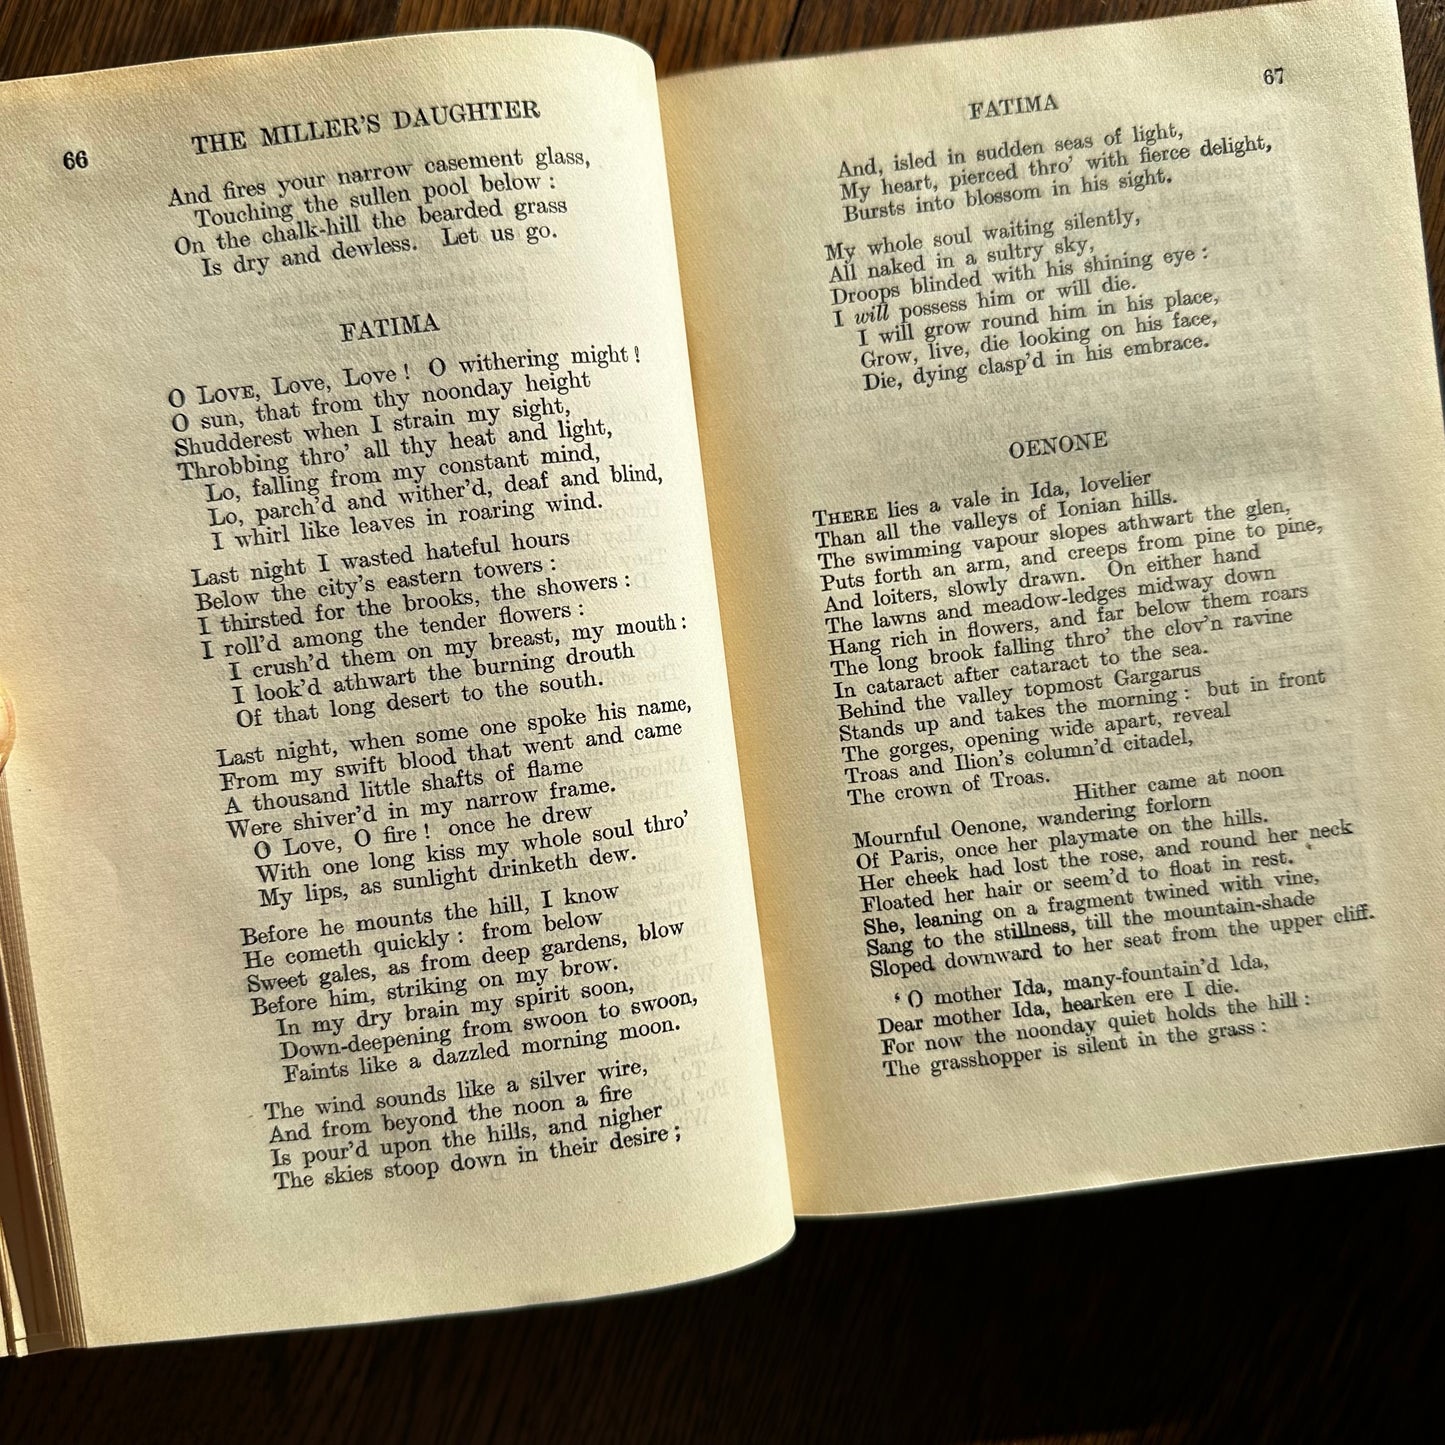 66
THE MILLER'S DAUGHTER
And fires your narrow casement glass,
Touching the sullen pool below :
On the chalk-hill the bearded grass
Is dry and dewless. Let us go.
FATIMA
O LOVE, Love, Love ! O withering might !
O sun, that from thy noonday height
Shudderest when I strain my sight,
Throbbing thro' all thy heat and light,
Lo, falling from my constant mind,
Lo, parch'd and wither'd, deaf and blind,
I whirl like leaves in roaring wind.
Last night I wasted hateful hours
Below the city's eastern towers :
I thirsted for the brooks, the showers :
I roll'd among the tender flowers :
I crush'd them on my breast, my mouth :
I look'd athwart the burning drouth
Of that long desert to the south.
Last night, when some one spoke his name,
From my swift blood that went and came
A thousand little shafts of flame
Were shiver'd in my narrow frame.
O Love, O fire ! once he drew
With one long kiss my whole soul thro'
My lips, as sunlight drinketh dew.
Before he mounts the hill, I know
He cometh quickly : from below
Sweet gales, as from deep gardens, blow
Before him, striking on my brow.
In my dry brain my spirit soon,
Down-deepening from swoon to swoon,
Faints like a dazzled morning moon.
The wind sounds like a silver wire,
And from beyond the noon a fire
Is pour'd upon the hills, and nigher
The skies stoop down in their desire ;
67
FATIMA
And, isled in sudden seas of light,
My heart, pierced thro' with fierce delight,
Bursts into blossom in his sight.
My whole soul waiting silently,
All naked in a sultry sky,
Droops blinded with his shining eye :
I will possess him or will die.
I will grow round him in his place,
Grow, live, die looking on his face,
Die, dying clasp'd in his embrace.
OENONE
THERE lies a vale in Ida, lovelier
Than all the valleys of Ionian hills.
The swimming vapour slopes athwart the glen,
Puts forth an arm, and creeps from pine to pine,
And loiters, slowly drawn. On either hand
The lawns and meadow-ledges midway down
Hang rich in flowers, and far below them roars
The long brook falling thro' the clov'n ravine
In cataract after cataract to the sea.
Behind the valley topmost Gargarus
Stands up and takes the morning : but in front
The gorges, opening wide apart, reveal
Troas and Ilion's column'd citadel,
The crown of Troas.
Hither came at noon
Mournful Oenone, wandering forlorn
Of Paris, once her playmate on the hills.
Her cheek had lost the rose, and round her neck
Floated her hair or seem'd to float in rest.
She, leaning on a fragment twined with vine,
Sang to the stillness, till the mountain-shade
Sloped downward to her seat from the upper cliff.
‘ O mother Ida, many-fountain'd Ida,
Dear mother Ida, hearken ere I die.
For now the noonday quiet holds the hill :
The grasshopper is silent in the grass :